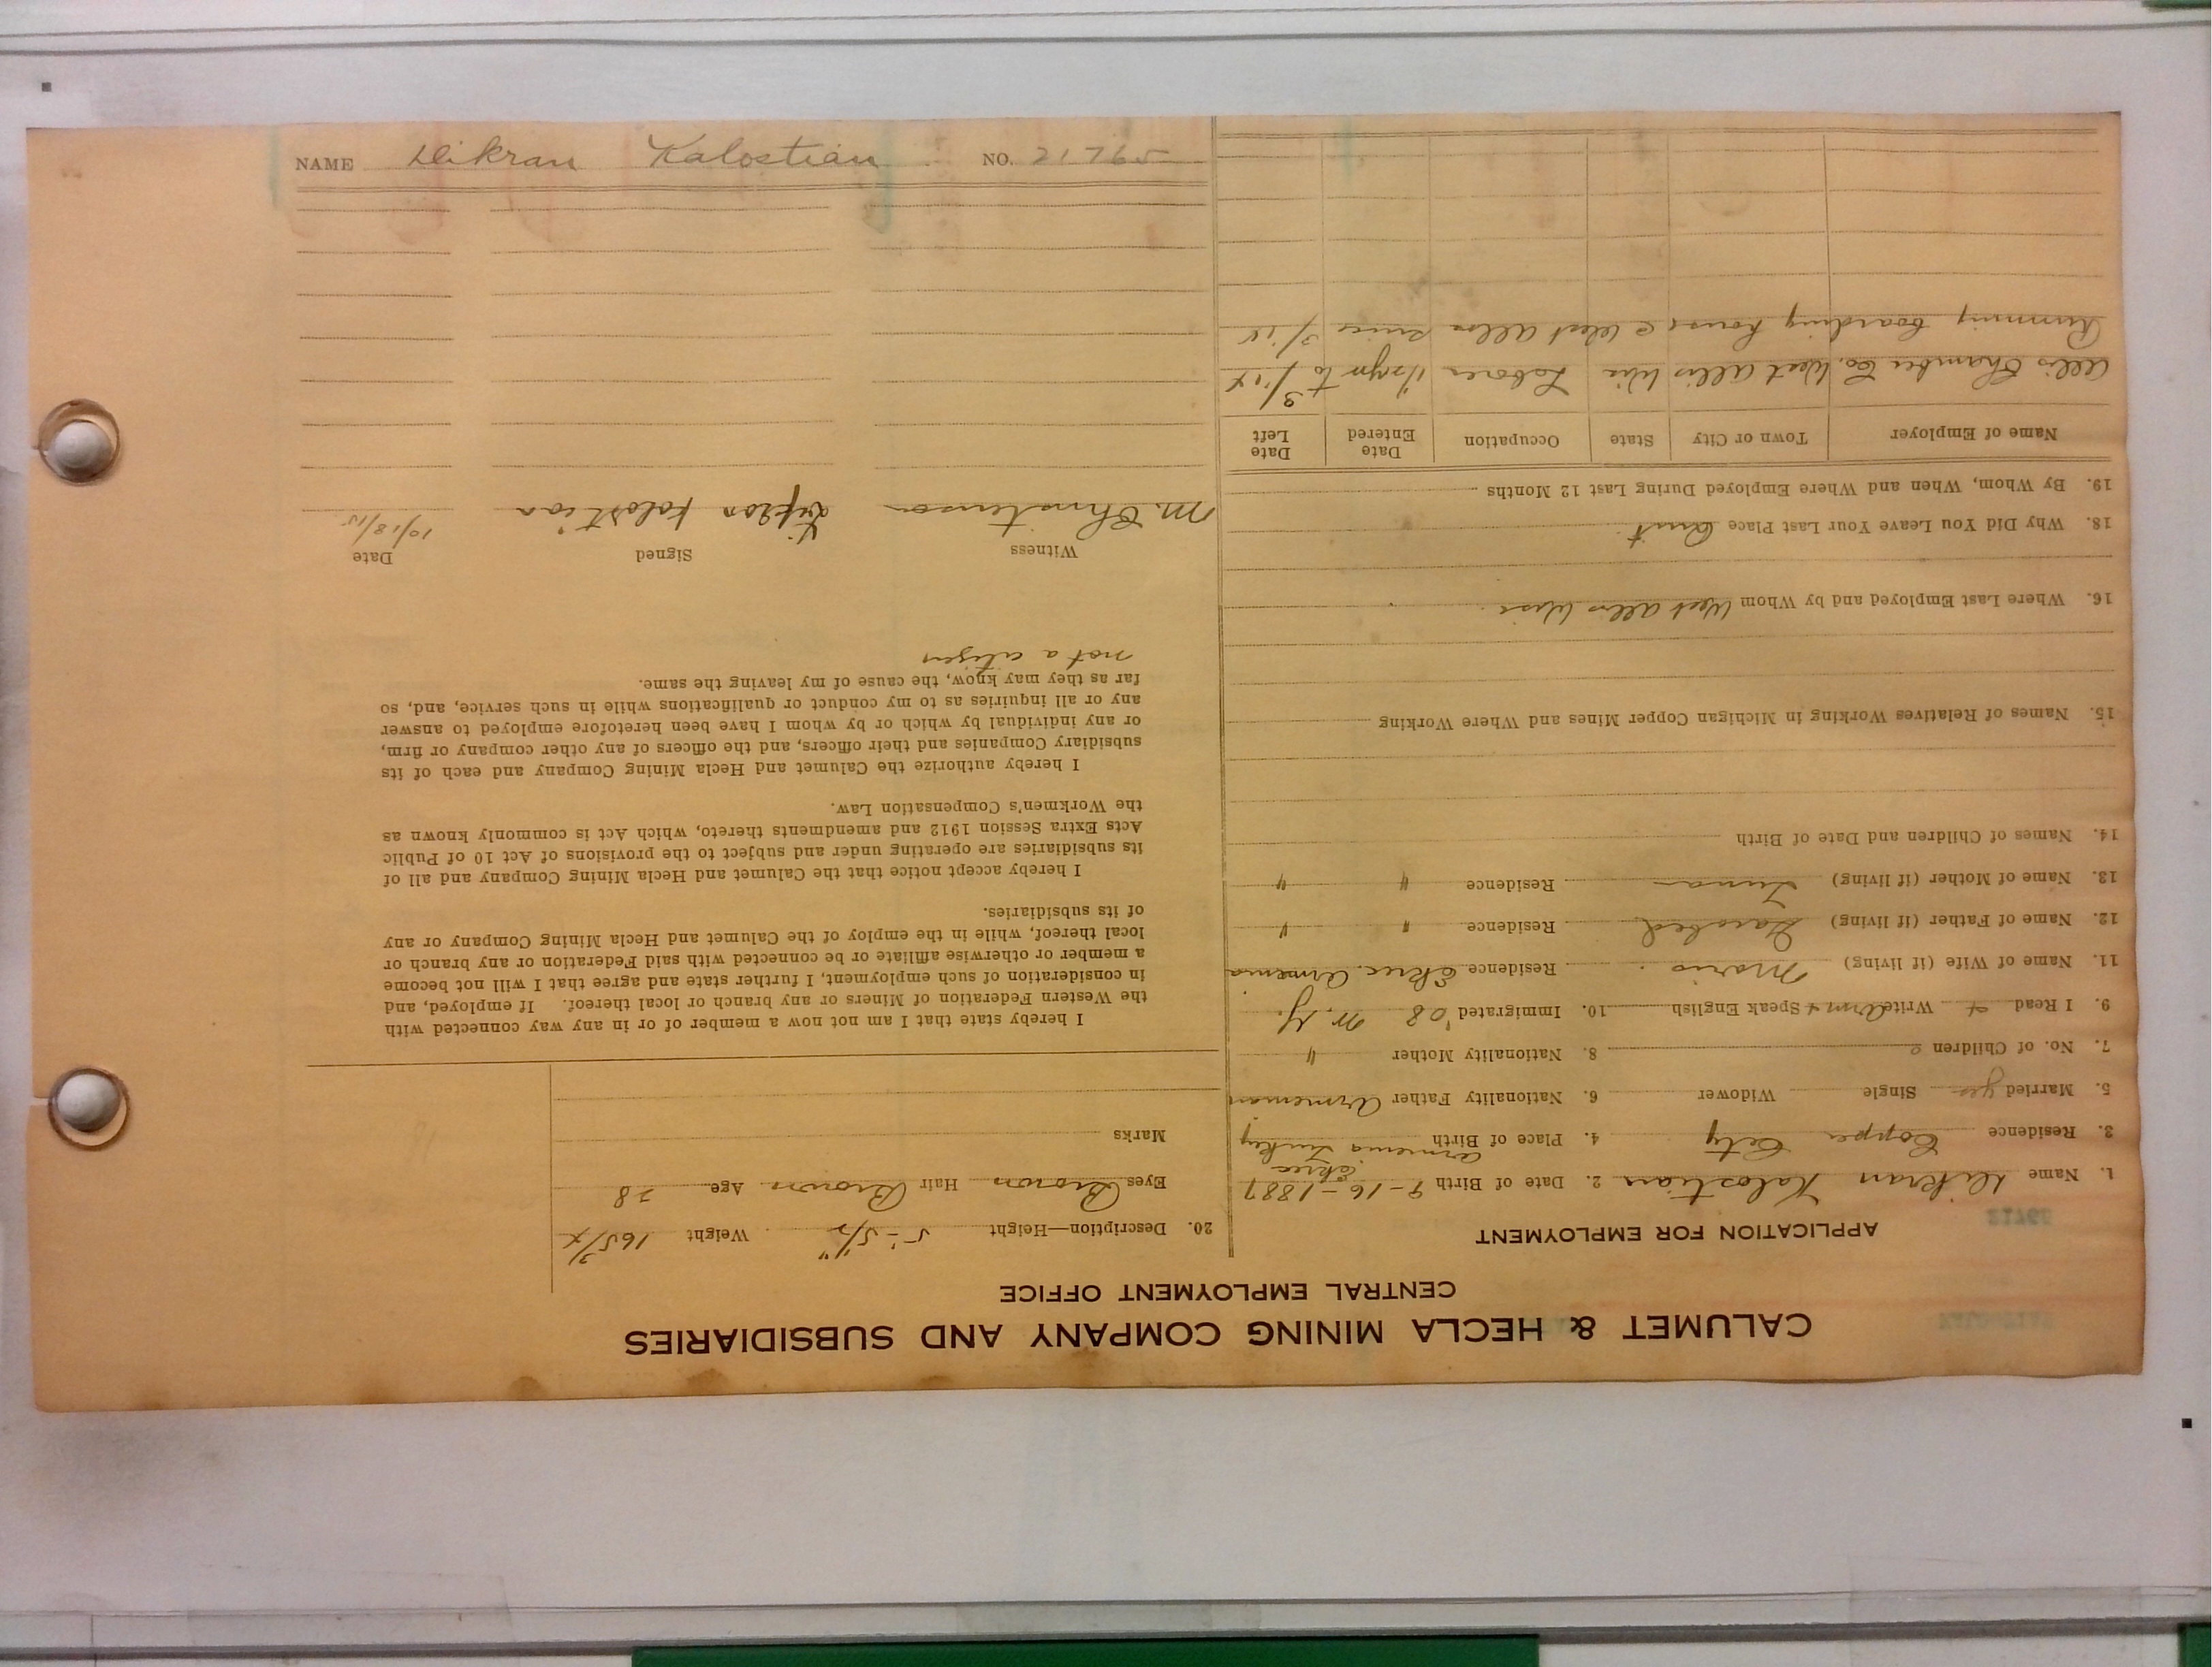 CALUMET & HECLA MINING COMPANY AND SUBSIDIARIES
CENTRAL EMPLOYMENT OFFICE
APPLICATION FOR EMPLOYMENT
1. Name Dikran Kalostian 2. Date of Birth 9-16-1887
3. Residence Copper City 4. Place of Birth Armenia Turkey
5. Married yes Single Widower 6. Nationality Father Armenian
7. No. of Children 2 8. Nationality Mother "
9. I Read + Write Arm + Speak English 10. Immigrated '08 N.Y.
11. Name of Wife (if living) Maria Residence Armenia
12. Name of Father (if living) Residence " "
13. Name of Mother (if living) Residence " "
14. Names of Children and Date of Birth
15. Names of Relatives Working in Michigan Copper Mines and Where Working
16. Where Last Employed and by Whom West Allis Wisc.
18. Why Did You Leave Your Last Place Quit
19. By Whom, When and Where Employed During Last 12 Months
Name of Employer Town or City State Occupation Date Entered Date Left
Allis Chamber Co. West Allis Wis Laborer to
Running boarding house @ West Allis since
20. Description—Height 5'-5½" Weight
Eyes Brown Hair Brown Age 28
Marks
I hereby state that I am not now a member of or in any way connected with
the Western Federation of Miners or any branch or local thereof. If employed, and
in consideration of such employment, I further state and agree that I will not become
a member or otherwise affiliate or be connected with said Federation or any branch or
local thereof, while in the employ of the Calumet and Hecla Mining Company or any
of its subsidiaries.
I hereby accept notice that the Calumet and Hecla Mining Company and all of
its subsidiaries are operating under and subject to the provisions of Act 10 of Public
Acts Extra Session 1912 and amendments thereto, which Act is commonly known as
the Workmen's Compensation Law.
I hereby authorize the Calumet and Hecla Mining Company and each of its
subsidiary Companies and their officers, and the officers of any other company or firm,
or any individual by which or by whom I have been heretofore employed to answer
any or all inquiries as to my conduct or qualifications while in such service, and, so
far as they may know, the cause of my leaving the same.
not a citizen
Witness Signed Date
M. Christenson Kalostian 10/18/15
NAME Dikran Kalostian NO. 21765